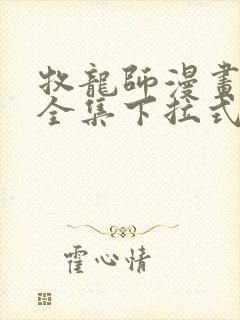 牧龍師漫畫
全集下拉式
霍心情